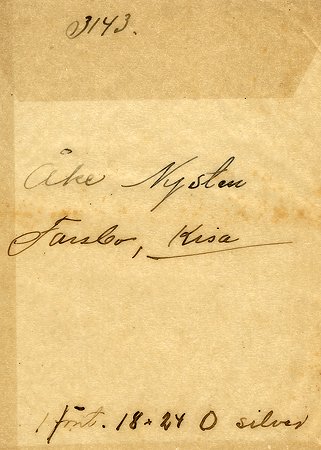 3143.
Åke Nysten
Farsbo, Kisa
1 font. 18 x 24 O silver